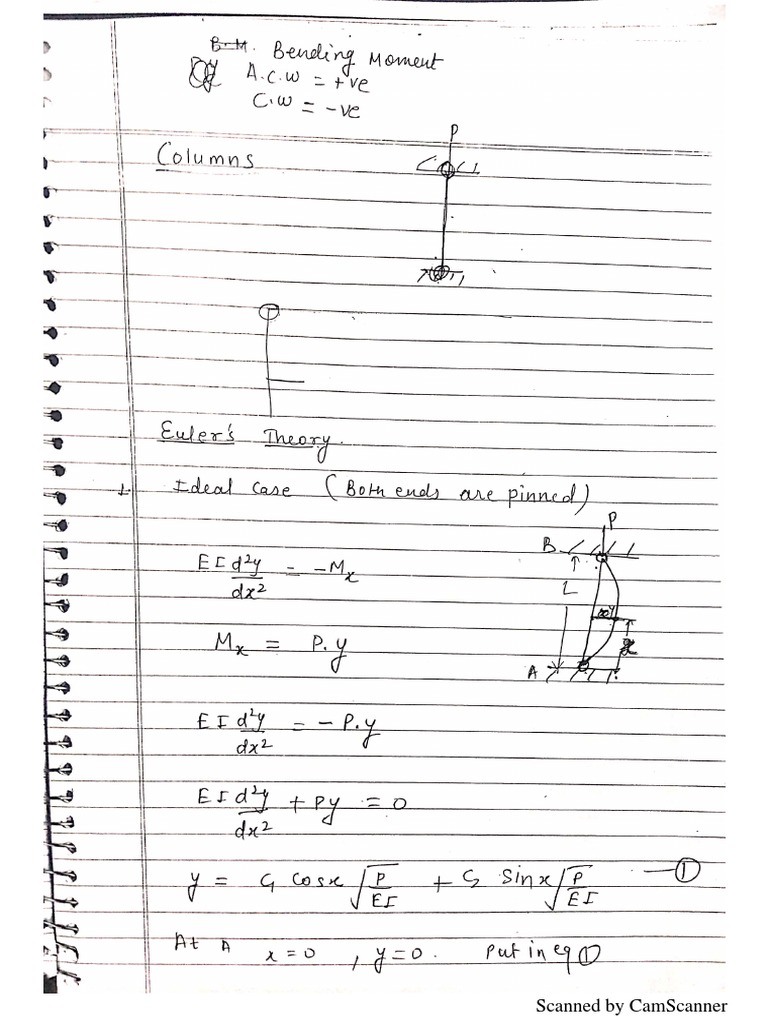 B.M. Bending Moment
A.C.W = +ve
C.W = -ve
P
Columns
Euler's Theory.
Ideal Case (Both ends are pinned)
P
B
L
EI d²y/dx² = -Mx
y
x
Mx = P.y
A
EI d²y/dx² = -P.y
EI d²y/dx² + Py = 0
y = C₁ cosx √P/EI + C₂ sinx √P/EI —①
At A x=0 , y=0. Put in eq ①
Scanned by CamScanner